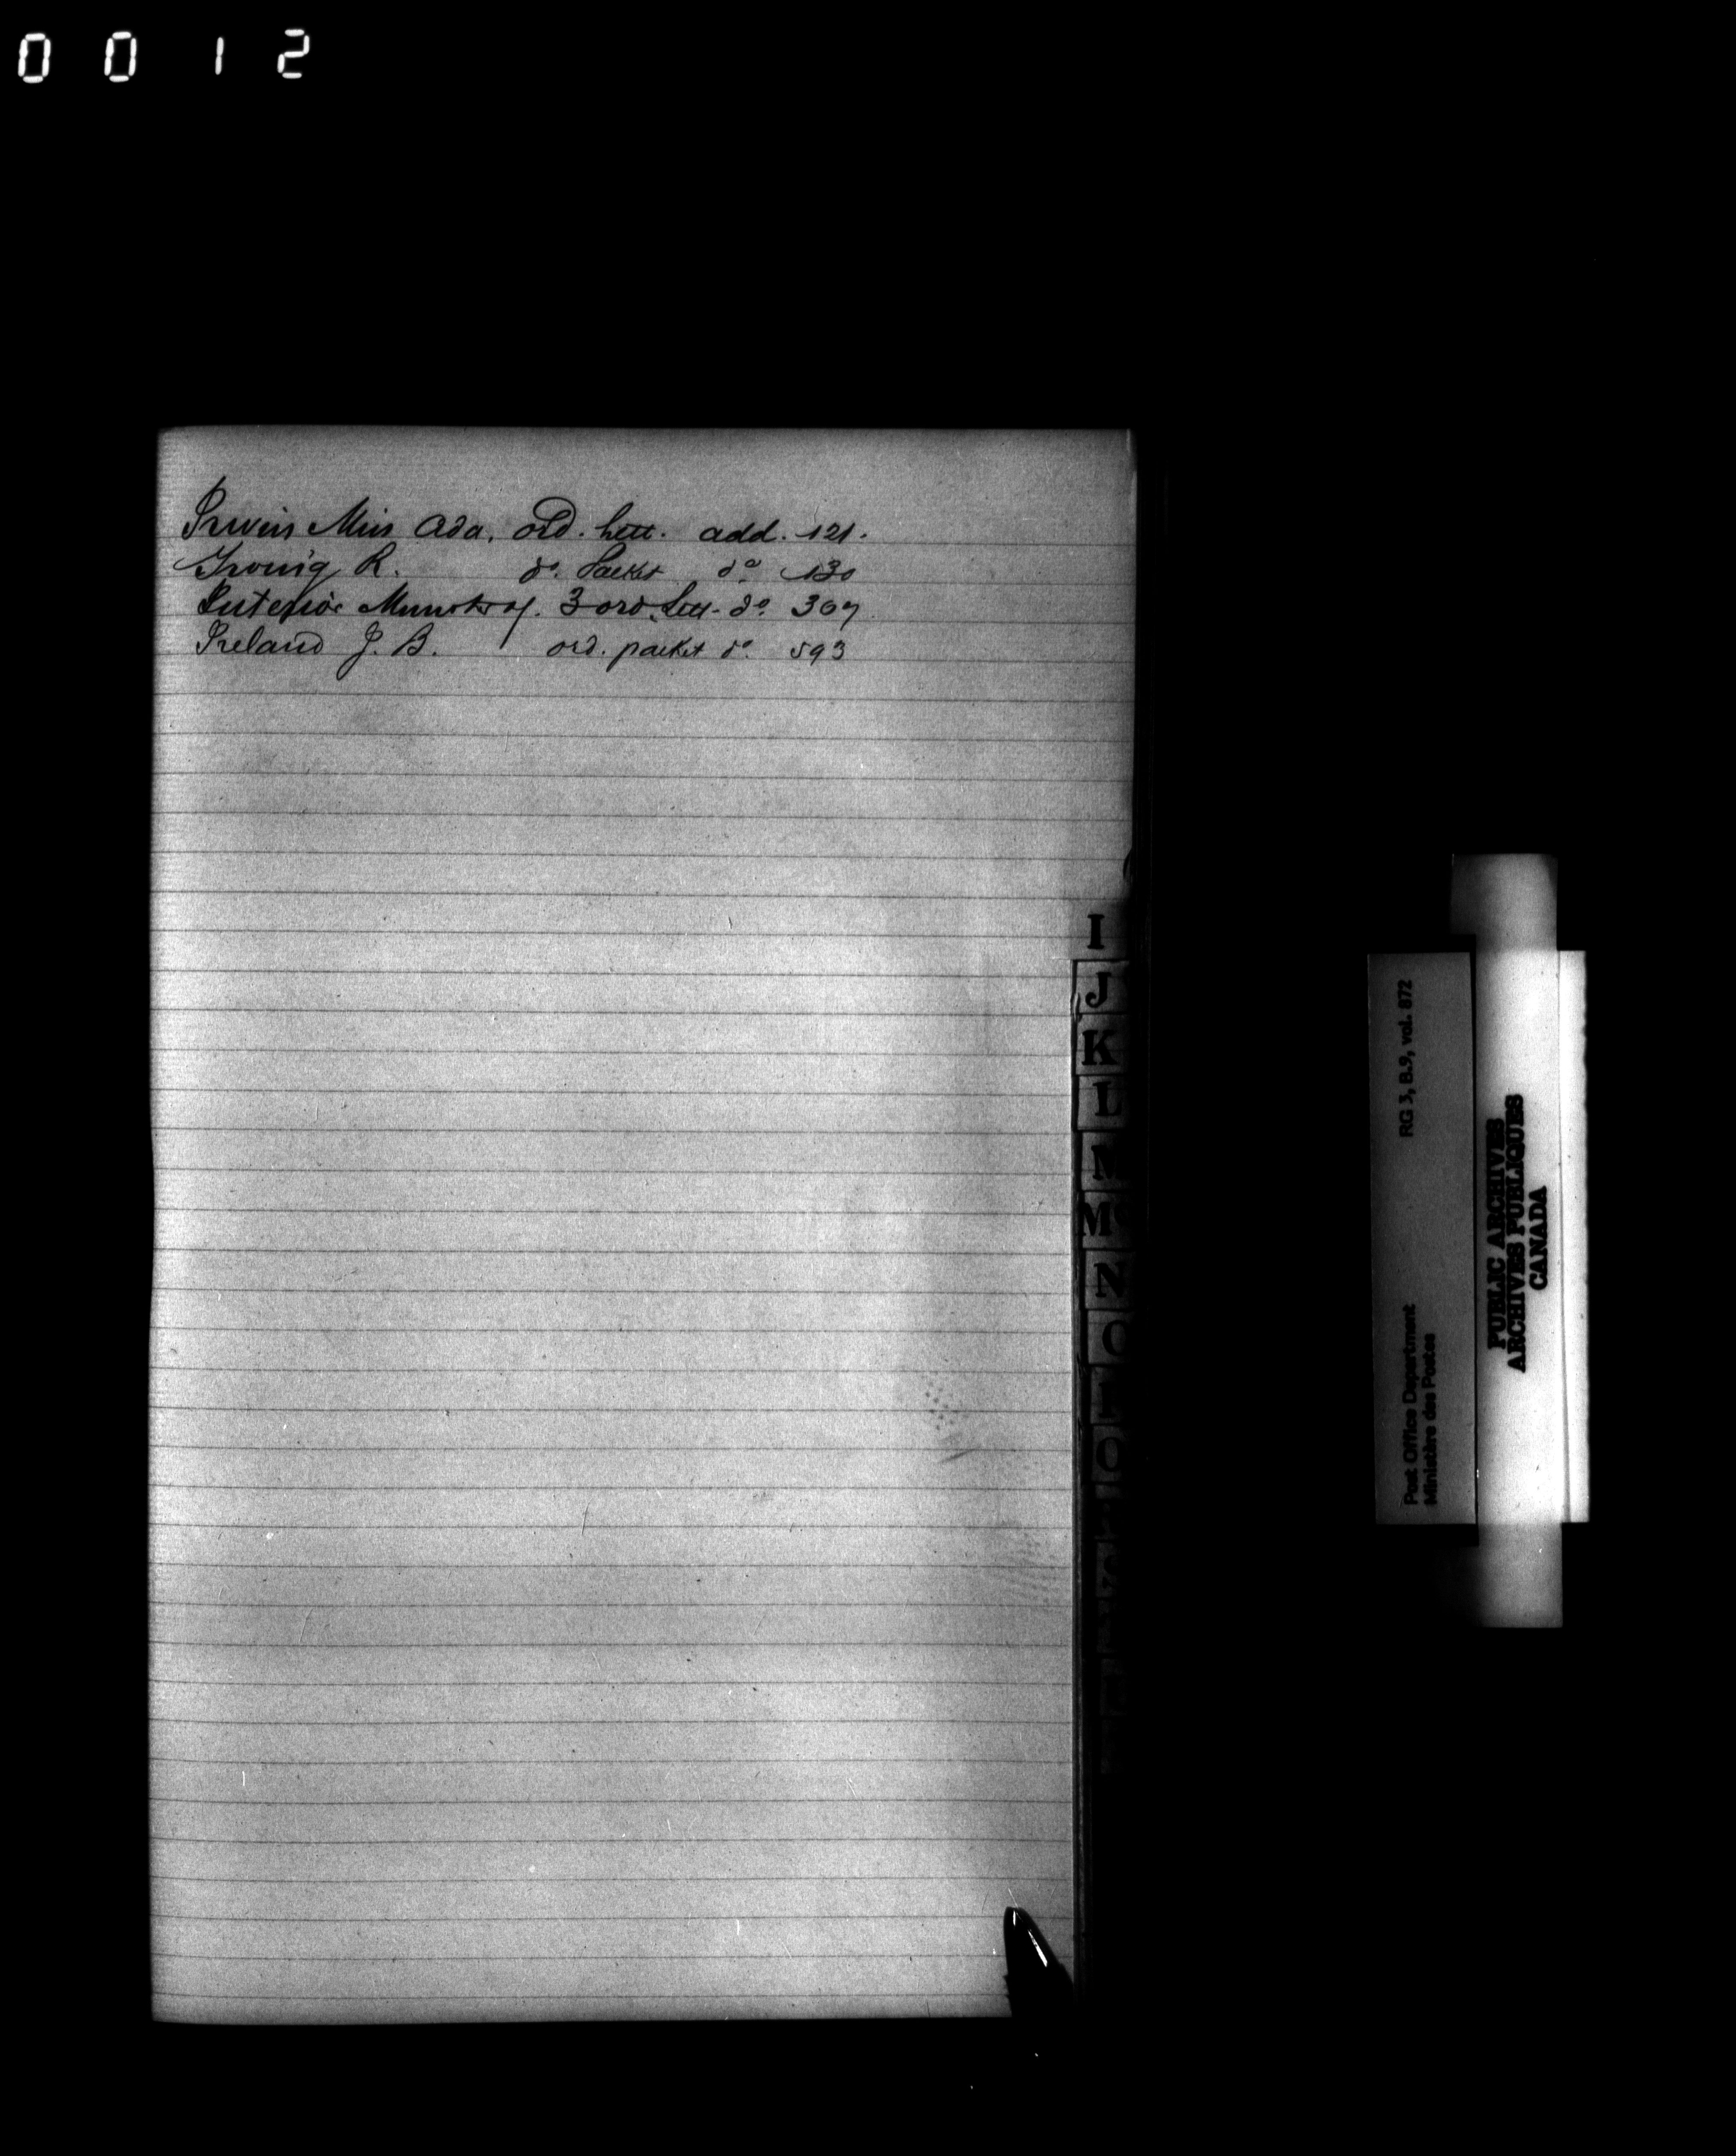 0012
Irwin Miss Ada. ord. Lett. add. 121.
Irving R. do. Packet do 130
Interior Minister of. 3 ord. Lett. do. 307
Ireland J. B. ord. packet do. 593
I
J
K
L
M
Mc
N
O
P
Q
RG 3, B.9, vol. 872
Post Office Department
Ministère des Postes
PUBLIC ARCHIVES
ARCHIVES PUBLIQUES
CANADA